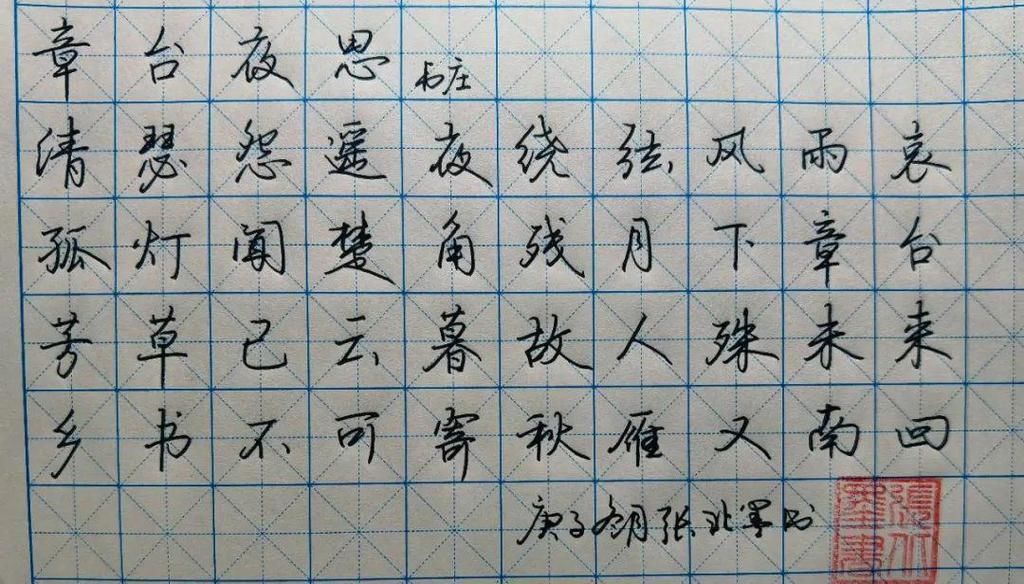 章台夜思 韦庄
清瑟怨遥夜绕弦风雨哀
孤灯闻楚角残月下章台
芳草已云暮故人殊未来
乡书不可寄秋雁又南回
庚子冬月张北墨书
张北墨书